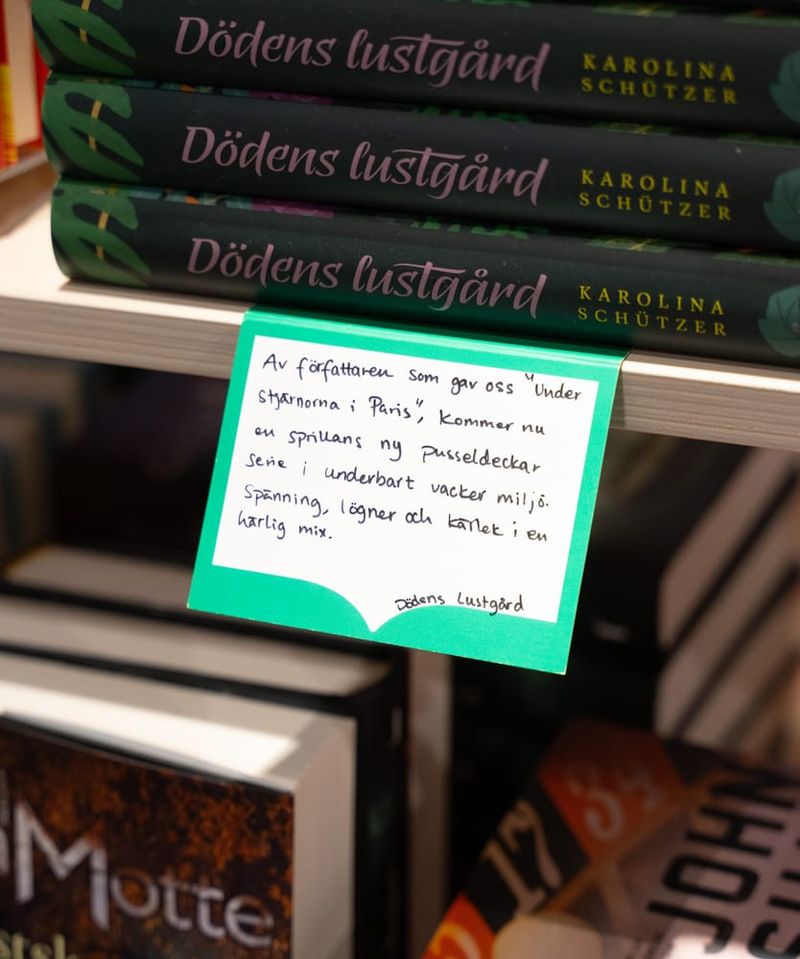 Dödens lustgård KAROLINA SCHÜTZER
Dödens lustgård KAROLINA SCHÜTZER
Dödens lustgård KAROLINA SCHÜTZER
Av författaren som gav oss "Under
stjärnorna i Paris", kommer nu
en sprillans ny pusseldeckar
serie i underbart vacker miljö.
Spänning, lögner och kärlek i en
härlig mix.
Dödens Lustgård
Motte
17
34
JOHN